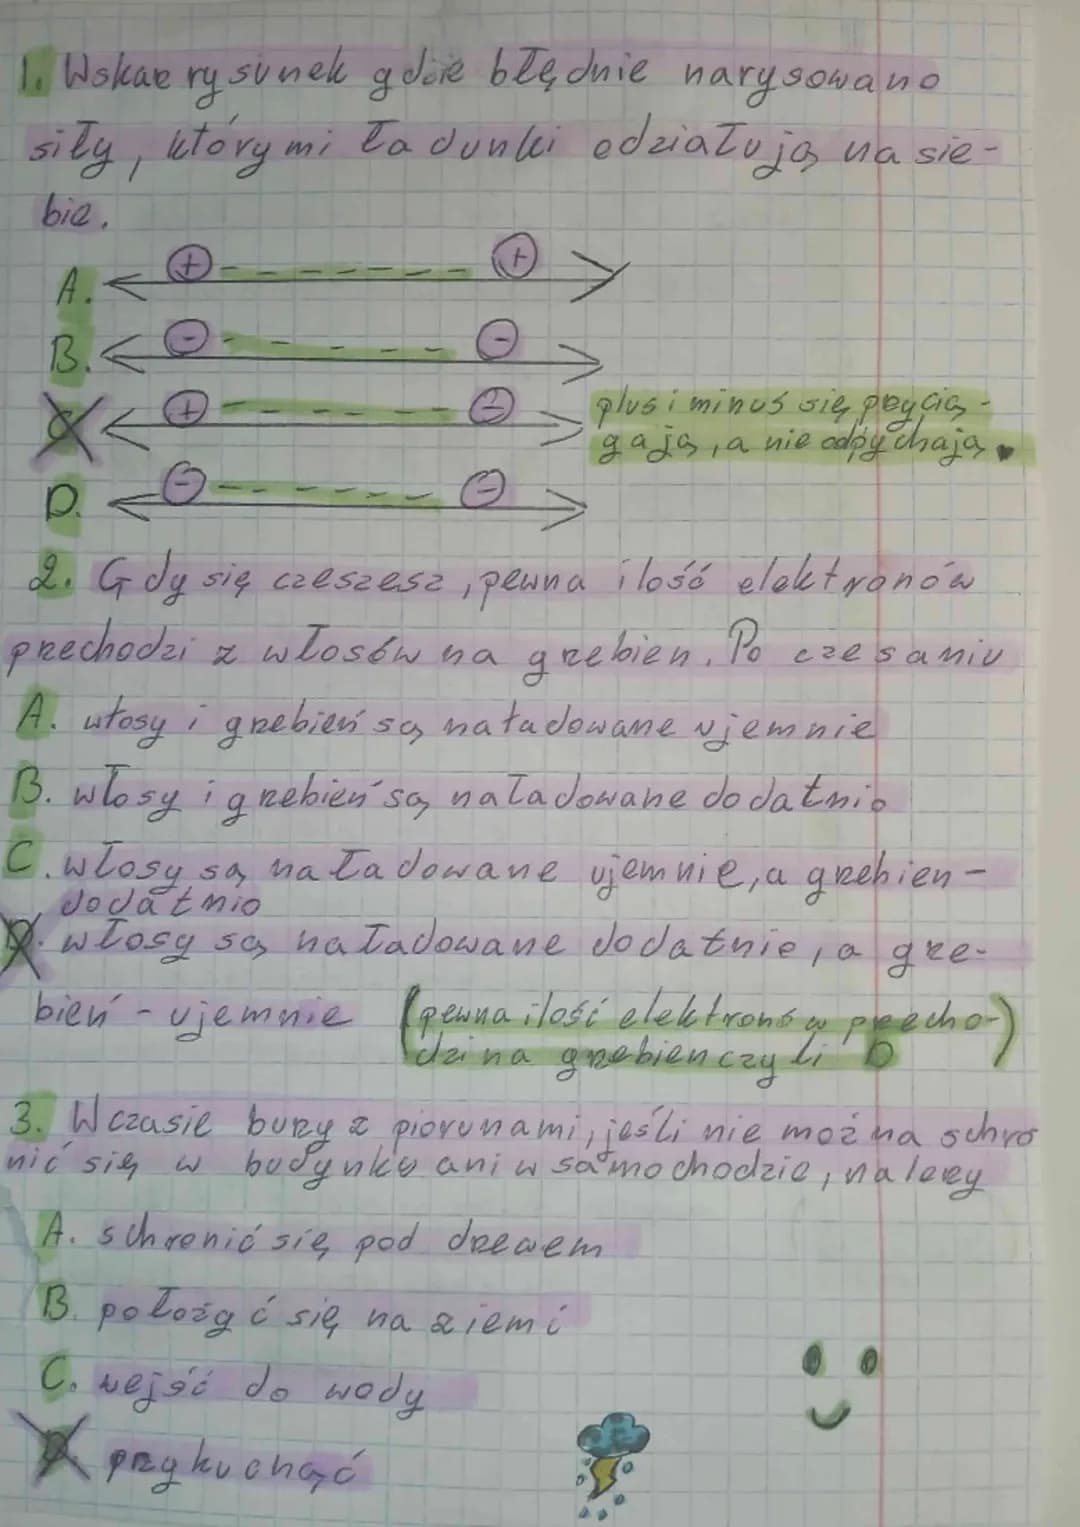 1. Wskaż rysunek gdzie błędnie narysowano
siły, którymi ładunki odziałują na sie-
bie.
A. + +
B. - -
C. + -
plus i minus się przycią-
gają, a nie odpychają.
D. - -
2. Gdy się czeszesz, pewna ilość elektronów
przechodzi z włosów na grzebień. Po czesaniu
A. włosy i grzebień są naładowane ujemnie
B. włosy i grzebień są naładowane dodatnio
C. włosy są naładowane ujemnie, a grzebień -
dodatnio
D. włosy są naładowane dodatnie, a grze-
bień - ujemnie
(pewna ilość elektronów przecho-)
dzi na grzebień czyli D
3. W czasie burzy z piorunami, jeśli nie można schro
nić się w budynku ani w samochodzie, należy
A. schronić się pod drzewem
B. położyć się na ziemi
C. wejść do wody
D. przykucnąć